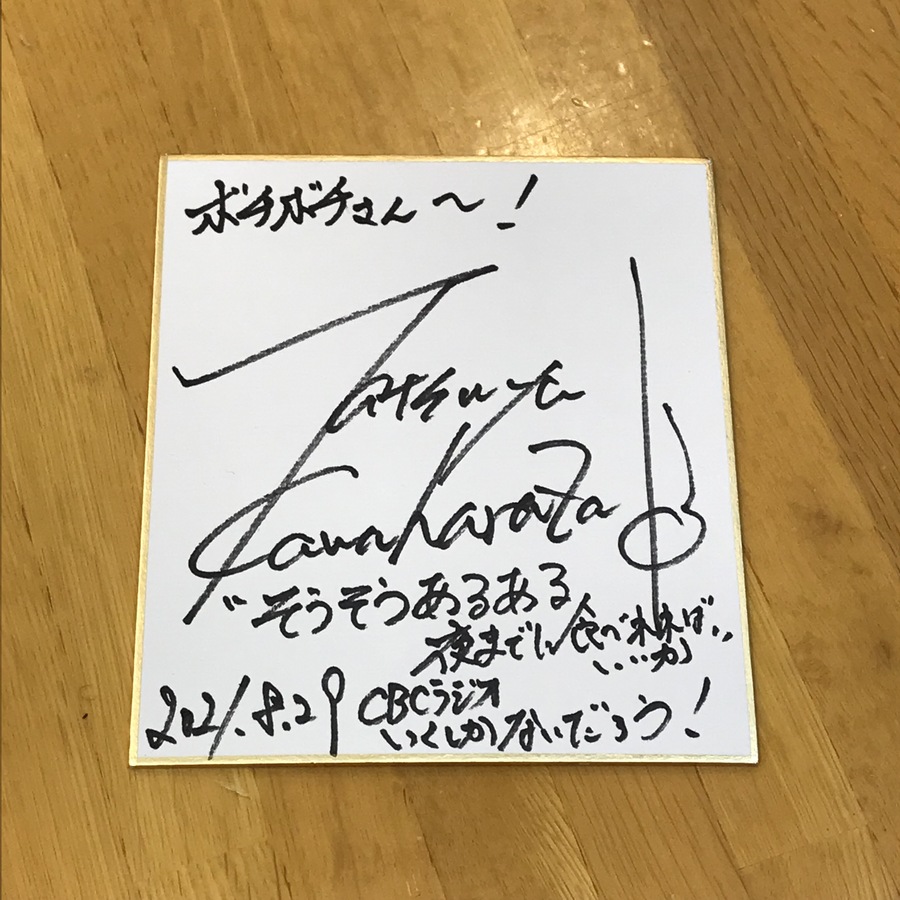 ボチボチさん〜!
Tatsuya
Kawahara
"そうそうあるある
夜までに食べれればいいか"
2021.8.29 CBCラジオ
いくしかないだろう!